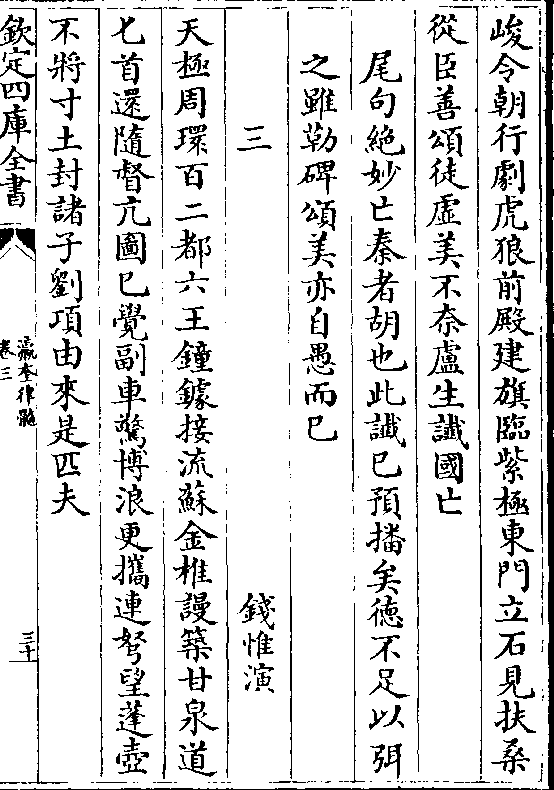 峻令朝行劇虎狼前殿建旗臨紫極東門立石見扶桑
從臣善頌徒虛美不奈盧生讖國亡
尾句絶妙亡秦者胡也此讖已預播矣徳不足以弭
之雖勒碑頌美亦自愚而已
三
錢惟演
天極周環百二都六王鐘鐻接流蘇金椎謾築甘泉道
匕首還隨督亢圖已覺副車驚博浪更攜連弩望蓬壺
不將寸土封諸子劉項由來是匹夫
欽定四庫全書
瀛奎律髓
卷三
三十